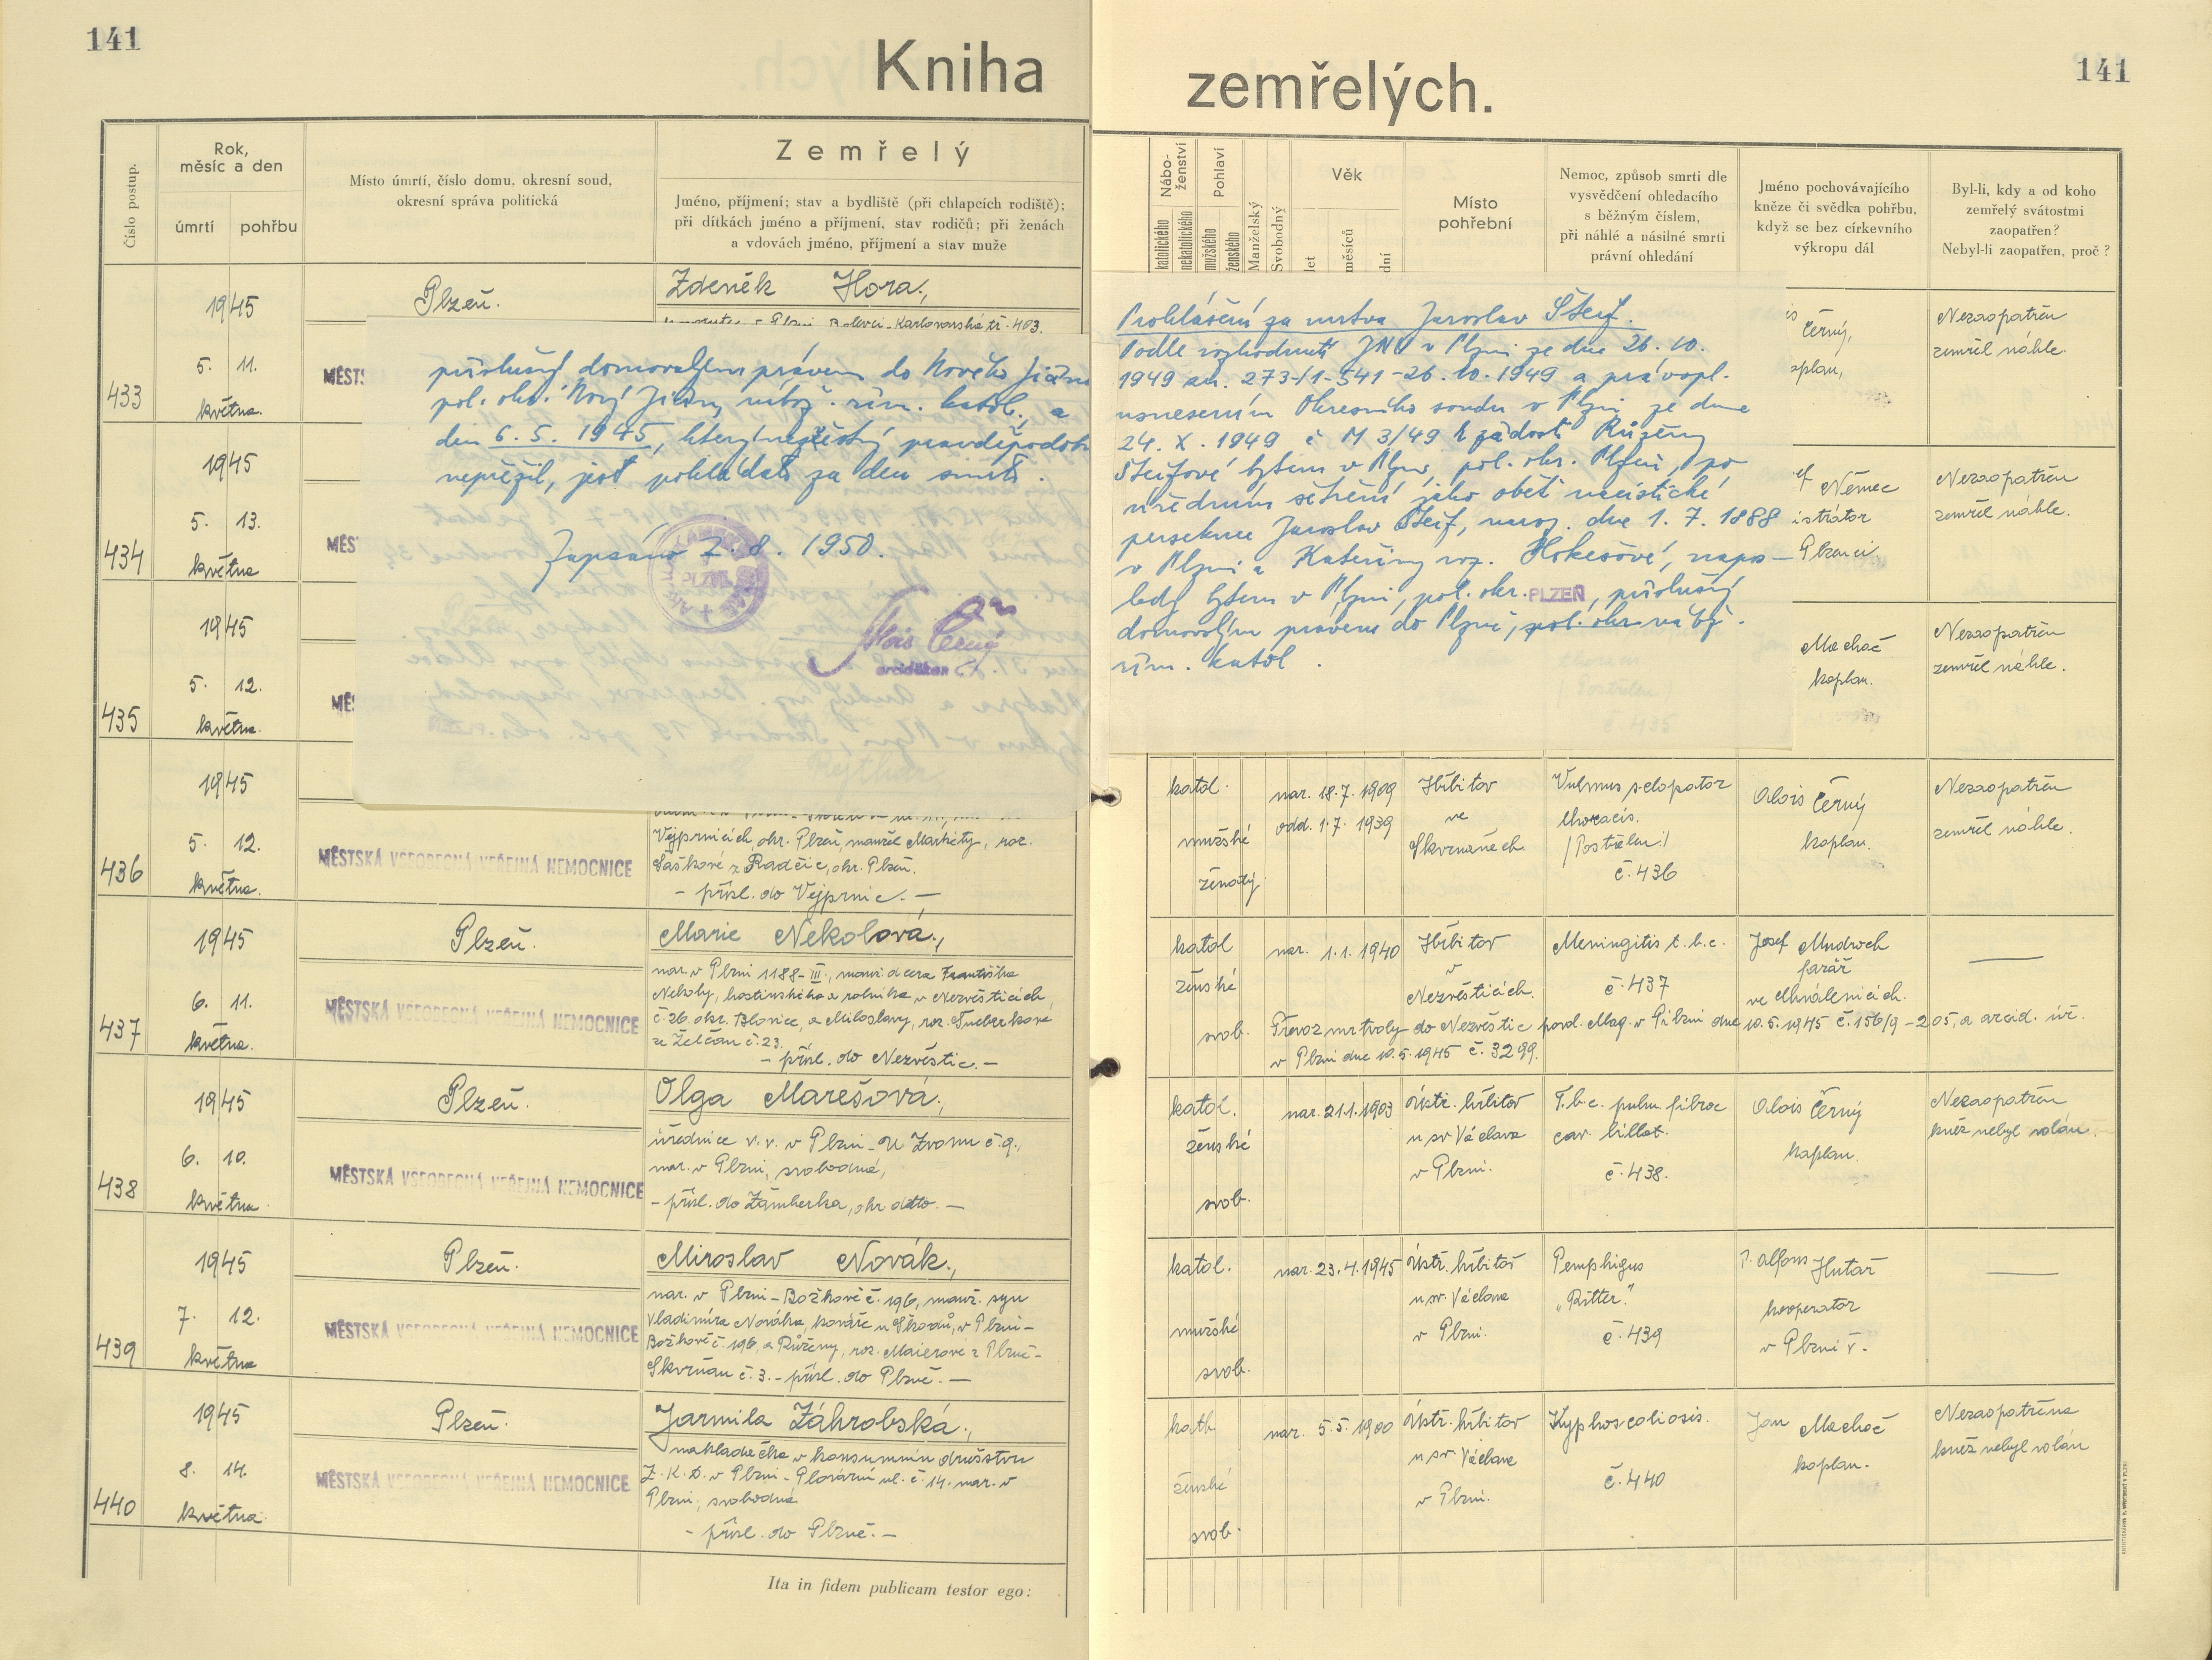 141
Kniha
zemřelých.
141
Číslo postup.
Rok, měsíc a den
úmrtí
pohřbu
Místo úmrtí, číslo domu, okresní soud,
okresní správa politická
Zemřelý
Jméno, příjmení; stav a bydliště (při chlapcích rodiště);
při dítkách jméno a příjmení, stav rodičů; při ženách
a vdovách jméno, příjmení a stav muže
Nábo-
ženství
katolického
nekatolického
Pohlaví
mužského
ženského
Manželský
Svobodný
Věk
let
měsíců
dní
Místo
pohřební
Nemoc, způsob smrti dle
vysvědčení ohledacího
s běžným číslem,
při náhlé a násilné smrti
právní ohledání
Jméno pochovávajícího
kněze či svědka pohřbu,
když se bez církevního
výkropu dál
Byl-li, kdy a od koho
zemřelý svátostmi
zaopatřen?
Nebyl-li zaopatřen, proč?
433
1945
5. 11.
května.
Plzeň.
MĚSTS
Zdeněk Hora.,
Plzni Bolevci-Karlovarská tř. 403.
Černý,
Nezaopatřen
zemřel náhle.
434
1945
5. 13.
května
MĚS
Němec
Nezaopatřen
zemřel náhle.
435
1945
5. 12.
května.
Machač
kaplan.
Nezaopatřen
zemřel náhle.
příslušný domovským právem do Nového Jičína
pol. okr. Nový Jičín, nábož. řím. katol., a
den 6. 5. 1945, který nezvěstný pravděpodob
nepřežil, jest pokládati za den smrti.
Zapsáno 7. 8. 1950.
Alois Černý
arciděkan
Prohlášení za mrtva Jaroslav Šteif.
Podle rozhodnutí JNV v Plzni ze dne 26. 10.
1949 zn. 273-/1-541-26. 10. 1949 a právopl.
usnesením Okresního soudu v Plzni ze dne
24. X. 1949 č M 3/49 k žádosti Růženy
Šteifové bytem v Plzni, pol. okr. Plzeň, po
úředním šetření jako oběť nacistické
persekuce Jaroslav Šteif, naroz. dne 1. 7. 1888
v Plzni a Kateřiny roz. Hokešové, napo-
ledy bytem v Plzni, pol. okr. PLZEŇ, příslušný
domovským právem do Plzně, pol. okr nábž.
řím. katol.
436
1945
5. 12.
května.
MĚSTSKÁ VŠEOBECNÁ VEŘEJNÁ NEMOCNICE
Vejprnicích, okr. Plzeň, manžel Markéty, roz.
Saškové z Radčic, okr. Plzeň.
- přísl. do Vejprnic. -
katol.
mužské
ženatý
nar. 18. 7. 1909
odd. 1. 7. 1939
Hřbitov
ve
Skvrňanech
Vulnus sclopetar
thoracis.
/Postřelení/
č. 436
Alois Černý
kaplan.
Nezaopatřen
zemřel náhle.
437
1945
6. 11.
května.
Plzeň.
MĚSTSKÁ VŠEOBECNÁ VEŘEJNÁ NEMOCNICE
Marie Nekolová.,
nar. v Plzni 1188-III., manž. dcera Františka
Nekoly, hostinského a rolníka v Nezvěsticích,
č. 26. okr. Blovice, a Miloslavy, roz.
ze Želčan č. 23.
- přísl. do Nezvěstic. -
katol
ženské
svob.
nar. 1. 1. 1940
Hřbitov
v
Nezvěsticích.
Meningitis t. b. c.
č. 437
Josef Mudroch
farář
ve Chválenicích.
Převoz mrtvoly do Nezvěstic povol. Mag. v Plzni dne 10. 5. 1945 č. 156/9-205, a arcid. úř.
v Plzni dne 10. 5. 1945 č. 3299.
438
1945
6. 10.
května.
Plzeň.
MĚSTSKÁ VŠEOBECNÁ VEŘEJNÁ NEMOCNICE
Olga Marešová.,
úřednice v. v. v Plzni - U Zvonu č. 9.,
nar. v Plzni, svobodná,
- přísl. do Žamberka, okr. detto. -
katol.
ženské
svob.
nar. 21.1.1903
Ústř. hřbitov
u sv Václava
v Plzni.
T.b.c. pulm. fibroc
cav. billat.
č. 438.
Alois Černý
kaplan.
Nezaopatřen
kněz nebyl volán.
439
1945
7. 12.
května
Plzeň.
MĚSTSKÁ VŠEOBECNÁ VEŘEJNÁ NEMOCNICE
Miroslav Novák.,
nar. v Plzni - Božkově č. 196, manž. syn
Vladimíra Nováka, kováře u Škodů, v Plzni-
Božkově č. 196, a Růženy, roz. Maierové z Plzně-
Skvrňan č. 3. - přísl. do Plzně. -
katol.
mužské
svob.
nar. 23.4.1945
Ústř. hřbitov
u sv. Václava
v Plzni.
Pemphigus
„Ritter."
č. 439
P. Alfons Hutař
kooperator
v Plzni V.
440
1945
8. 14.
května.
Plzeň.
MĚSTSKÁ VŠEOBECNÁ VEŘEJNÁ NEMOCNICE
Jarmila Záhrobská.,
nakladečka v konsumním družstvu
Z. K. D. v Plzni - Plovární ul. č. 14. nar. v
Plzni, svobodná
- přísl. do Plzně. -
kath.
ženské
svob.
nar. 5. 5. 1900
Ústř. hřbitov
u sv. Václava
v Plzni.
Kyphoscoliosis.
č. 440
Jan Machač
kaplan.
Nezaopatřena
kněz nebyl volán
Ita in fidem publicam testor ego: